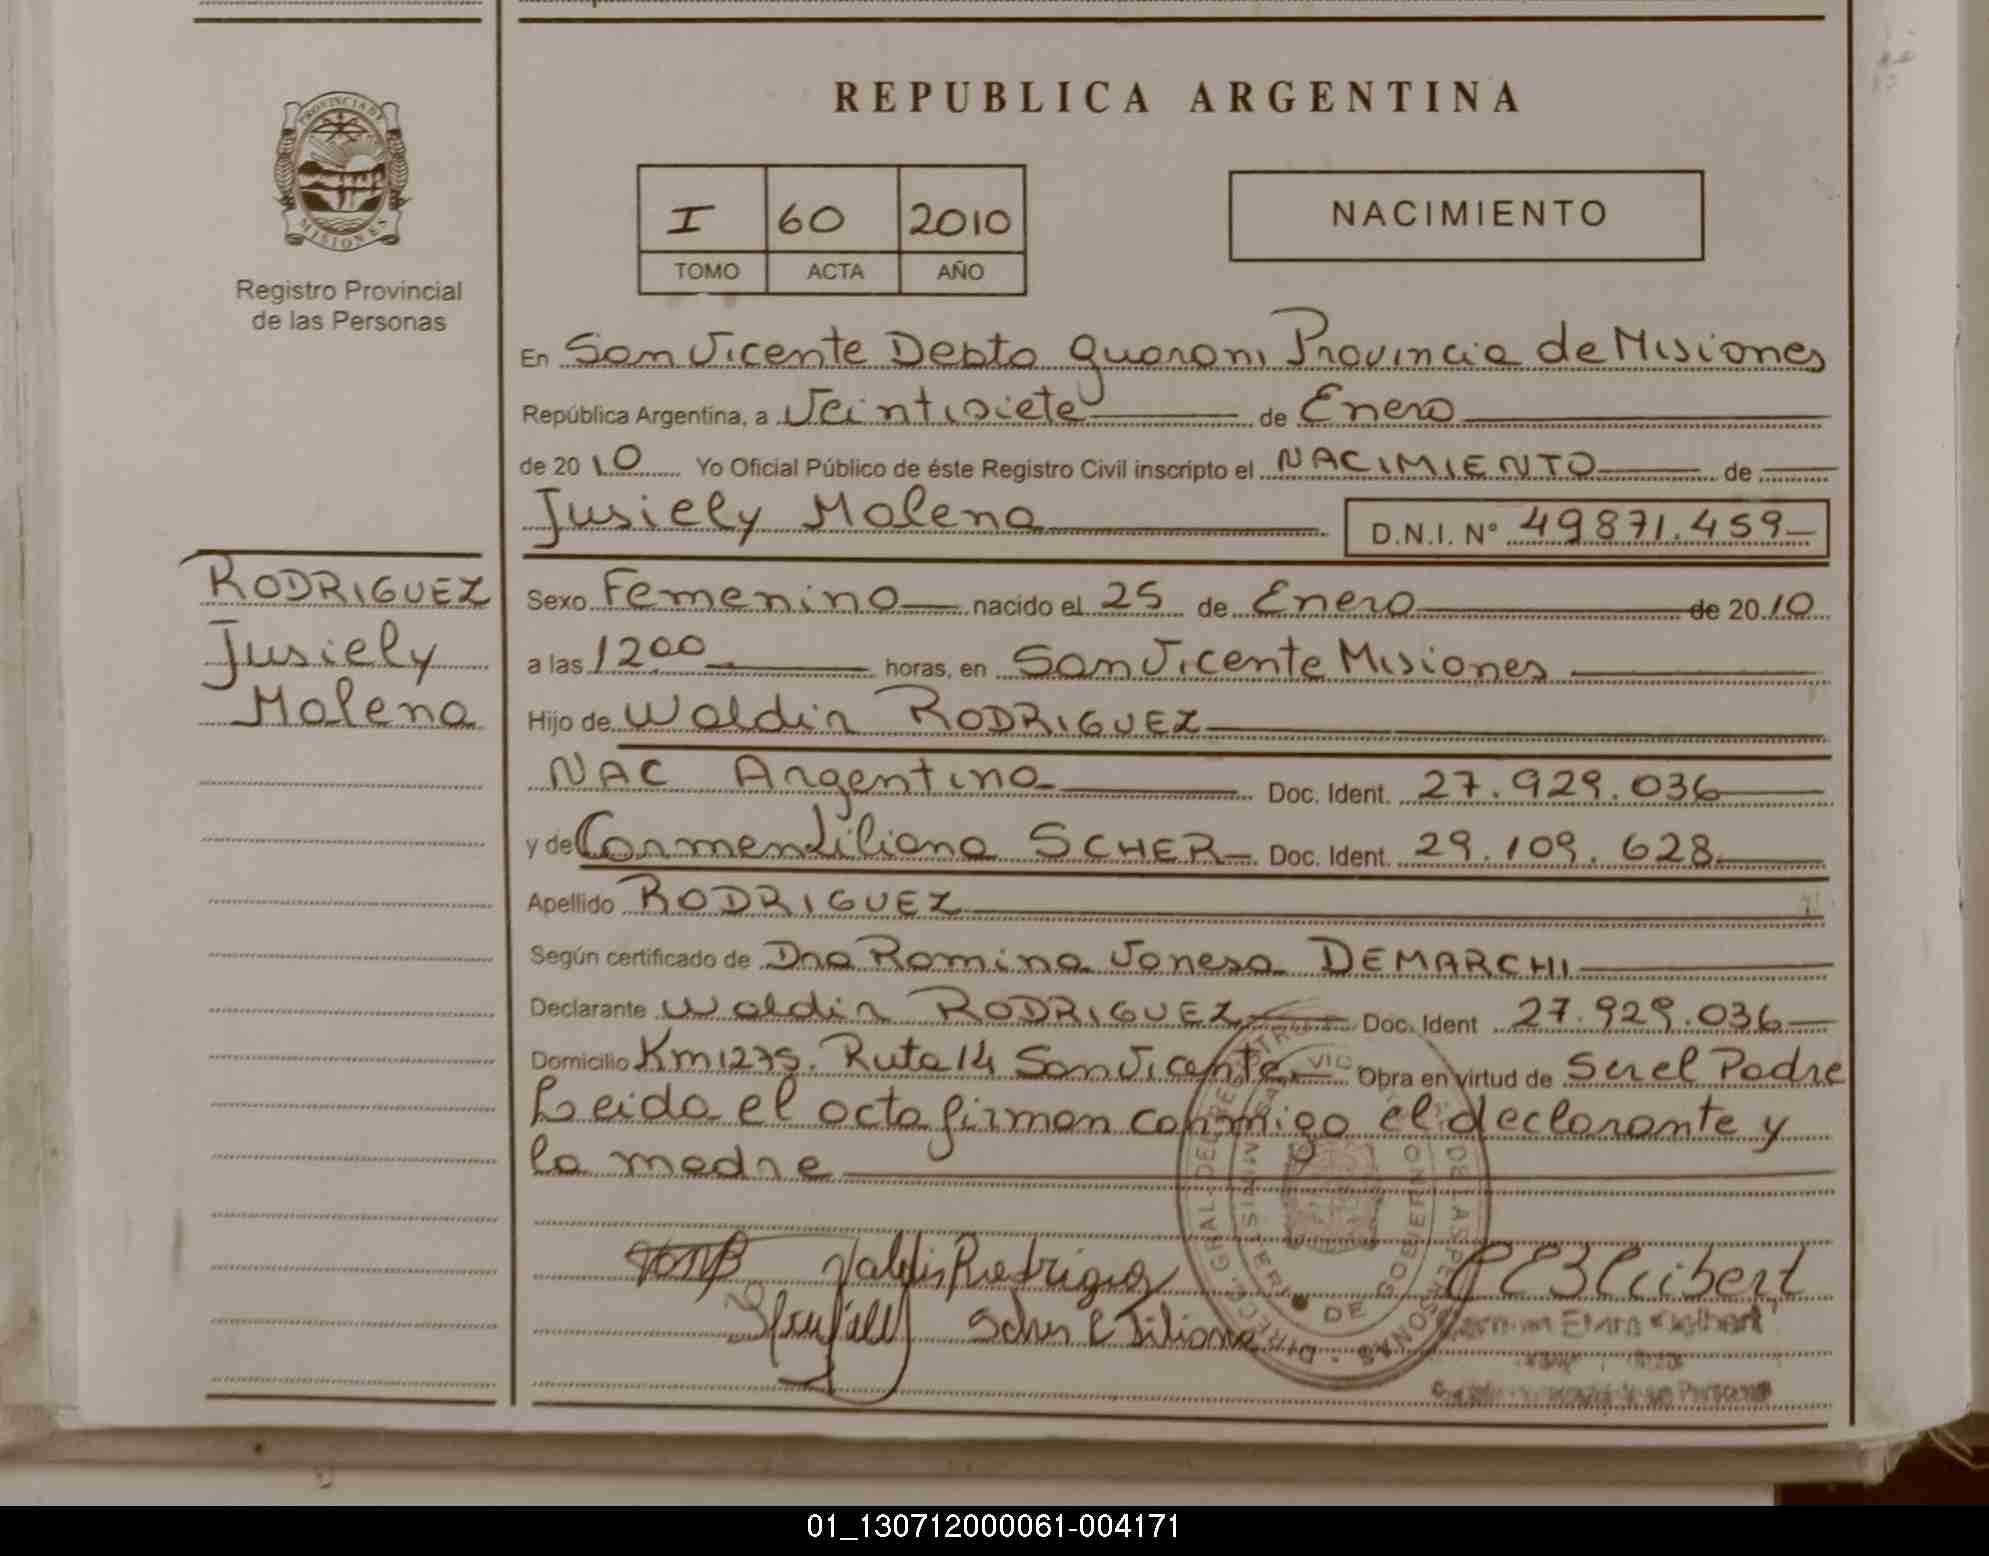 PROVINCIA DE
MISIONES
Registro Provincial
de las Personas
REPUBLICA ARGENTINA
I 60 2010
TOMO ACTA AÑO
NACIMIENTO
En San Vicente Depto Guarani Provincia de Misiones
República Argentina, a Veintisiete de Enero
de 2010 Yo Oficial Público de éste Registro Civil inscripto el NACIMIENTO de
Jusiely Malena D.N.I. Nº 49871.459
RODRIGUEZ
Jusiely
Malena
Sexo Femenino nacido el 25 de Enero de 2010
a las 1200 horas, en San Vicente Misiones
Hijo de Waldir RODRIGUEZ
NAC Argentina Doc. Ident. 27.929.036
y de Carmen Liliana SCHER Doc. Ident. 29.109.628
Apellido RODRIGUEZ
Según certificado de Dra Romina Vanesa DEMARCHI
Declarante Waldir RODRIGUEZ Doc. Ident 27.929.036
Domicilio Km1275. Ruta 14 San Vicente Obra en virtud de Ser el Padre
Leida el acta firman conmigo el declarante y
la madre
Rodrigues
Scher C Liliana
01_130712000061-004171